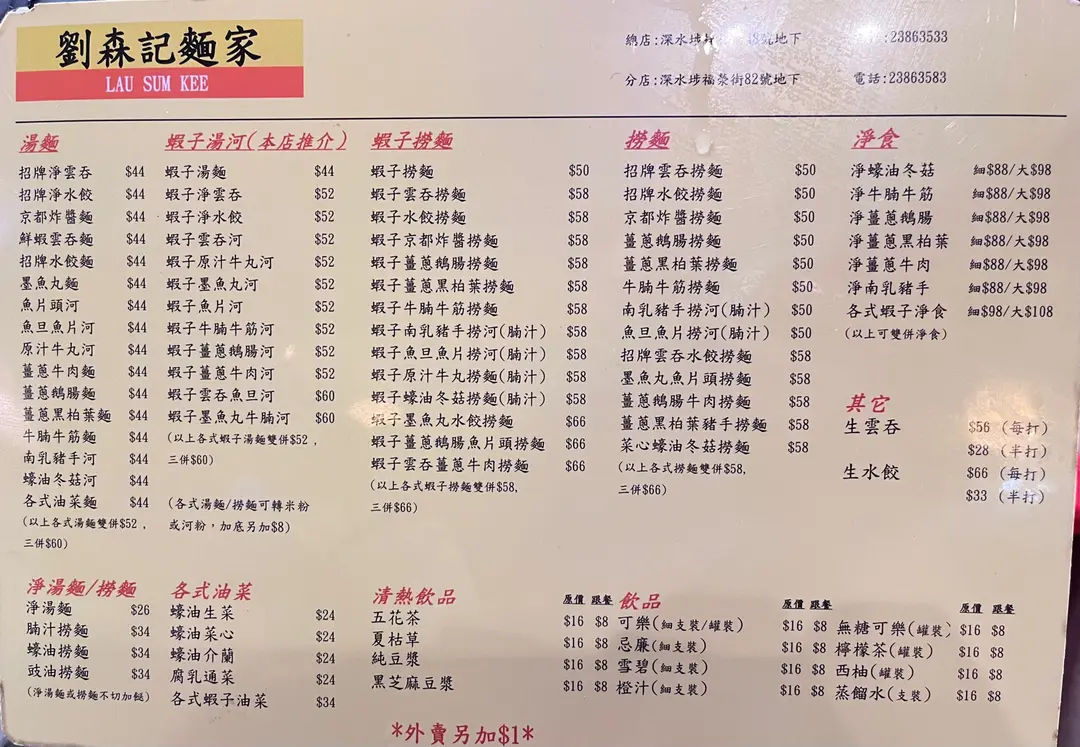 劉森記麵家
LAU SUM KEE
總店:深水埗 號地下 :23863533
分店:深水埗福榮街82號地下 電話:23863583
湯麵
招牌淨雲吞 $44
招牌淨水餃 $44
京都炸醬麵 $44
鮮蝦雲吞麵 $44
招牌水餃麵 $44
墨魚丸麵 $44
魚片頭河 $44
魚旦魚片河 $44
原汁牛丸河 $44
薑蔥牛肉麵 $44
薑蔥鵝腸麵 $44
薑蔥黑柏葉麵 $44
牛腩牛筋麵 $44
南乳豬手河 $44
蠔油冬菇河 $44
各式油菜麵 $44
(以上各式湯麵雙併$52，
三併$60)
蝦子湯河(本店推介)
蝦子湯麵 $44
蝦子淨雲吞 $52
蝦子淨水餃 $52
蝦子雲吞河 $52
蝦子原汁牛丸河 $52
蝦子墨魚丸河 $52
蝦子魚片河 $52
蝦子牛腩牛筋河 $52
蝦子薑蔥鵝腸河 $52
蝦子薑蔥牛肉河 $52
蝦子雲吞魚旦河 $60
蝦子墨魚丸牛腩河 $60
(以上各式蝦子湯麵雙併$52，
三併$60)
(各式湯麵/撈麵可轉米粉
或河粉，加底另加$8)
蝦子撈麵
蝦子撈麵 $50
蝦子雲吞撈麵 $58
蝦子水餃撈麵 $58
蝦子京都炸醬撈麵 $58
蝦子薑蔥鵝腸撈麵 $58
蝦子薑蔥黑柏葉撈麵 $58
蝦子牛腩牛筋撈麵 $58
蝦子南乳豬手撈河(腩汁) $58
蝦子魚旦魚片撈河(腩汁) $58
蝦子原汁牛丸撈麵(腩汁) $58
蝦子蠔油冬菇撈麵(腩汁) $58
蝦子墨魚丸水餃撈麵 $66
蝦子薑蔥鵝腸魚片頭撈麵 $66
蝦子雲吞薑蔥牛肉撈麵 $66
(以上各式蝦子撈麵雙併$58,
三併$66)
撈麵
招牌雲吞撈麵 $50
招牌水餃撈麵 $50
京都炸醬撈麵 $50
薑蔥鵝腸撈麵 $50
薑蔥黑柏葉撈麵 $50
牛腩牛筋撈麵 $50
南乳豬手撈河(腩汁) $50
魚旦魚片撈河(腩汁) $50
招牌雲吞水餃撈麵 $58
墨魚丸魚片頭撈麵 $58
薑蔥鵝腸牛肉撈麵 $58
薑蔥黑柏葉豬手撈麵 $58
菜心蠔油冬菇撈麵 $58
(以上各式撈麵雙併$58,
三併$66)
淨食
淨蠔油冬菇 細$88/大$98
淨牛腩牛筋 細$88/大$98
淨薑蔥鵝腸 細$88/大$98
淨薑蔥黑柏葉 細$88/大$98
淨薑蔥牛肉 細$88/大$98
淨南乳豬手 細$88/大$98
各式蝦子淨食 細$98/大$108
(以上可雙併淨食)
其它
生雲吞 $56 (每打)
$28 (半打)
生水餃 $66 (每打)
$33 (半打)
淨湯麵/撈麵
淨湯麵 $26
腩汁撈麵 $34
蠔油撈麵 $34
豉油撈麵 $34
(淨湯麵或撈麵不切加餸)
各式油菜
蠔油生菜 $24
蠔油菜心 $24
蠔油介蘭 $24
腐乳通菜 $24
各式蝦子油菜 $34
清熱飲品 原價 跟餐
五花茶 $16 $8
夏枯草 $16 $8
純豆漿 $16 $8
黑芝麻豆漿 $16 $8
飲品 原價 跟餐
可樂(細支裝/罐裝) $16 $8
忌廉(細支裝) $16 $8
雪碧(細支裝) $16 $8
橙汁(細支裝) $16 $8
原價 跟餐
無糖可樂(罐裝) $16 $8
檸檬茶(罐裝) $16 $8
西柚(罐裝) $16 $8
蒸餾水(支裝) $16 $8
*外賣另加$1*